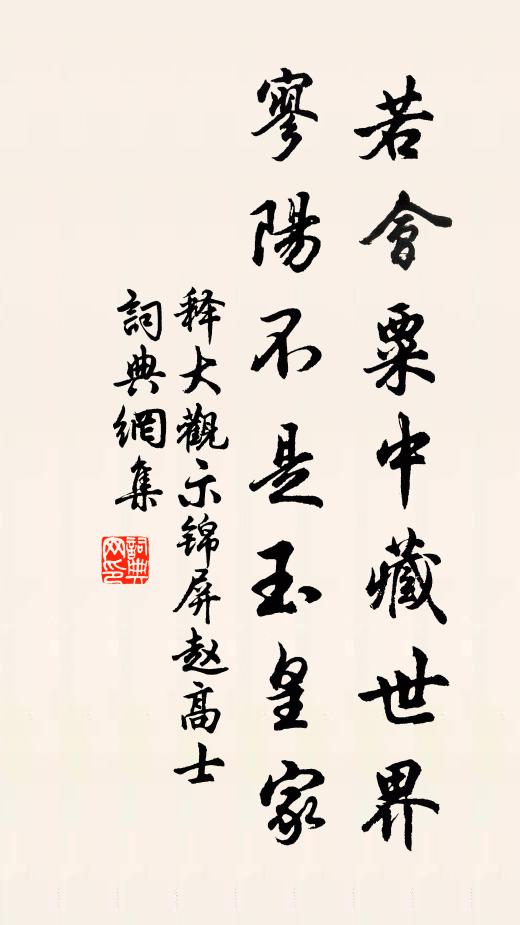 若會粟中藏世界
寥陽不是玉皇家
释大觀示锦屏赵高士
詞典網集
詞典網印